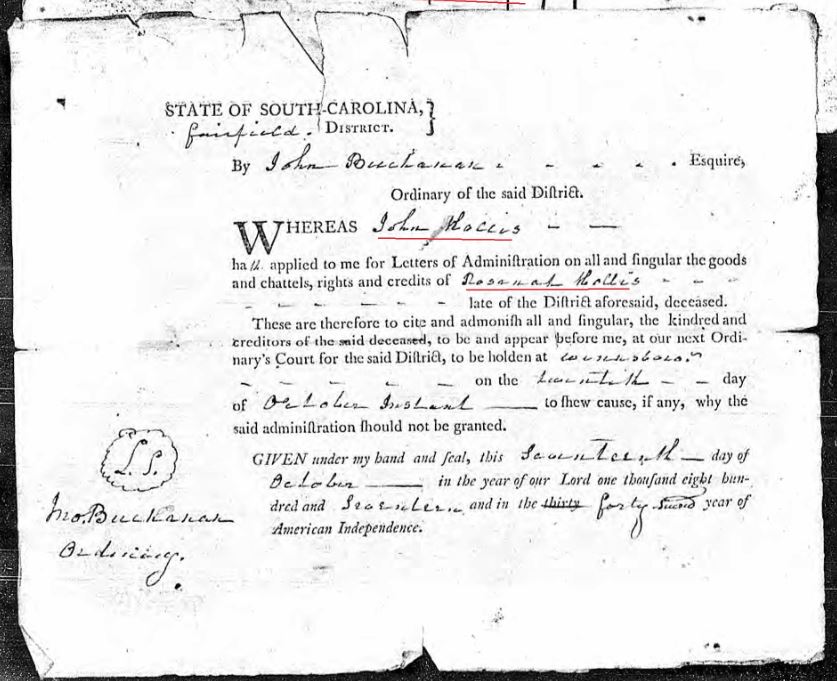 STATE OF SOUTH-CAROLINA,
Fairfield. DISTRICT.
By John Buchanan - - - - Esquire,
Ordinary of the said Diſtrict.
WHEREAS John Hollis - —
hath applied to me for Letters of Adminiſtration on all and ſingular the goods
and chattels, rights and credits of Rosanah Hollis - - -
- - - - - late of the Diſtrict aforeſaid, deceased.
Theſe are therefore to cite and admoniſh all and ſingular, the kindred and
creditors of the said deceased, to be and appear before me, at our next Ordi-
nary's Court for the ſaid Diſtrict, to be holden at Winnsboro
- - - - - on the twentieth - - day
of October Instant —— to ſhew cauſe, if any, why the
ſaid adminiſtration ſhould not be granted.
GIVEN under my hand and ſeal, this Seventeenth — day of
October —— in the year of our Lord one thouſand eight hun-
dred and Seventeen and in the thirty forty Second year of
American Independence.
L.S.
Jno. Buchanan
Ordinary.